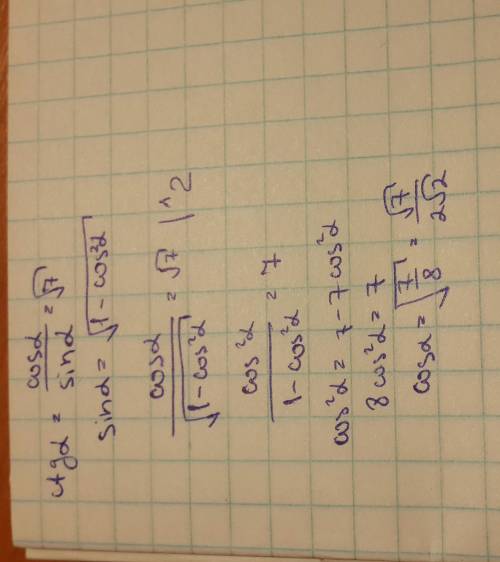 ctgα = cosα/sinα = √7
sinα = √(1 - cos²α)
cosα/√(1 - cos²α) = √7 |^2
cos²α/(1 - cos²α) = 7
cos²α = 7 - 7cos²α
8cos²α = 7
cosα = √(7/8) = √7/(2√2)